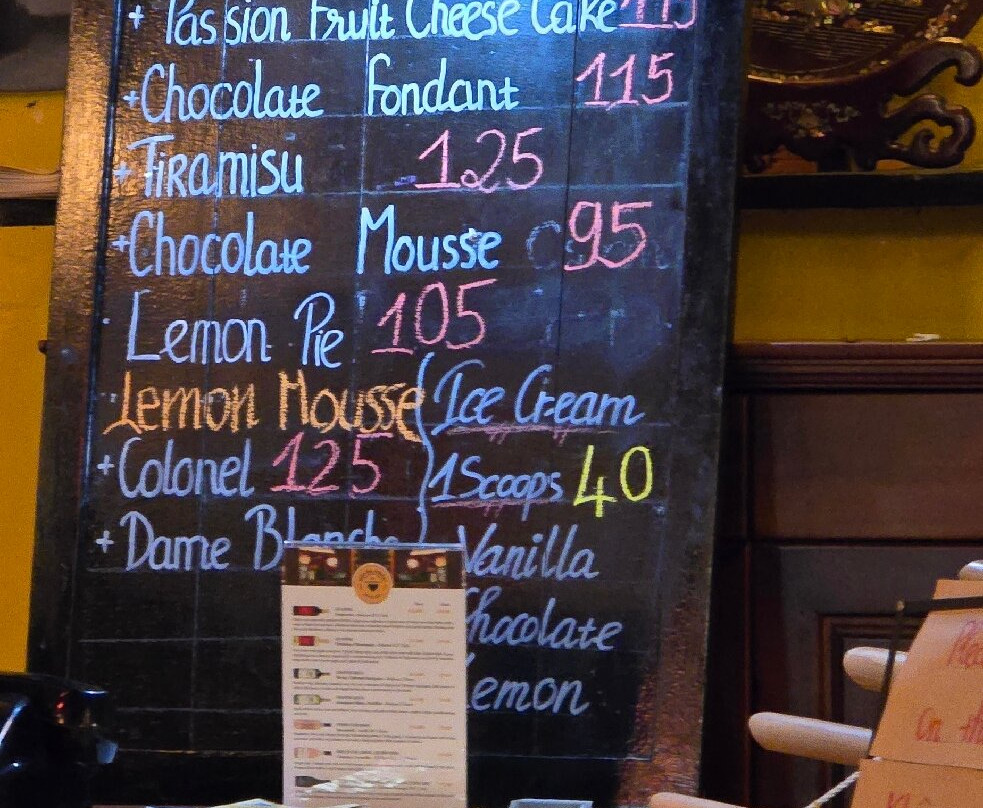 + Passion Fruit Cheese Cake 115
+ Chocolate Fondant 115
+ Tiramisu 125
+ Chocolate Mousse 95
Lemon Pie 105
Lemon Mousse
+ Colonel 125
+ Dame Blanche
Ice Cream
1 Scoops 40
Vanilla
Chocolate
Lemon